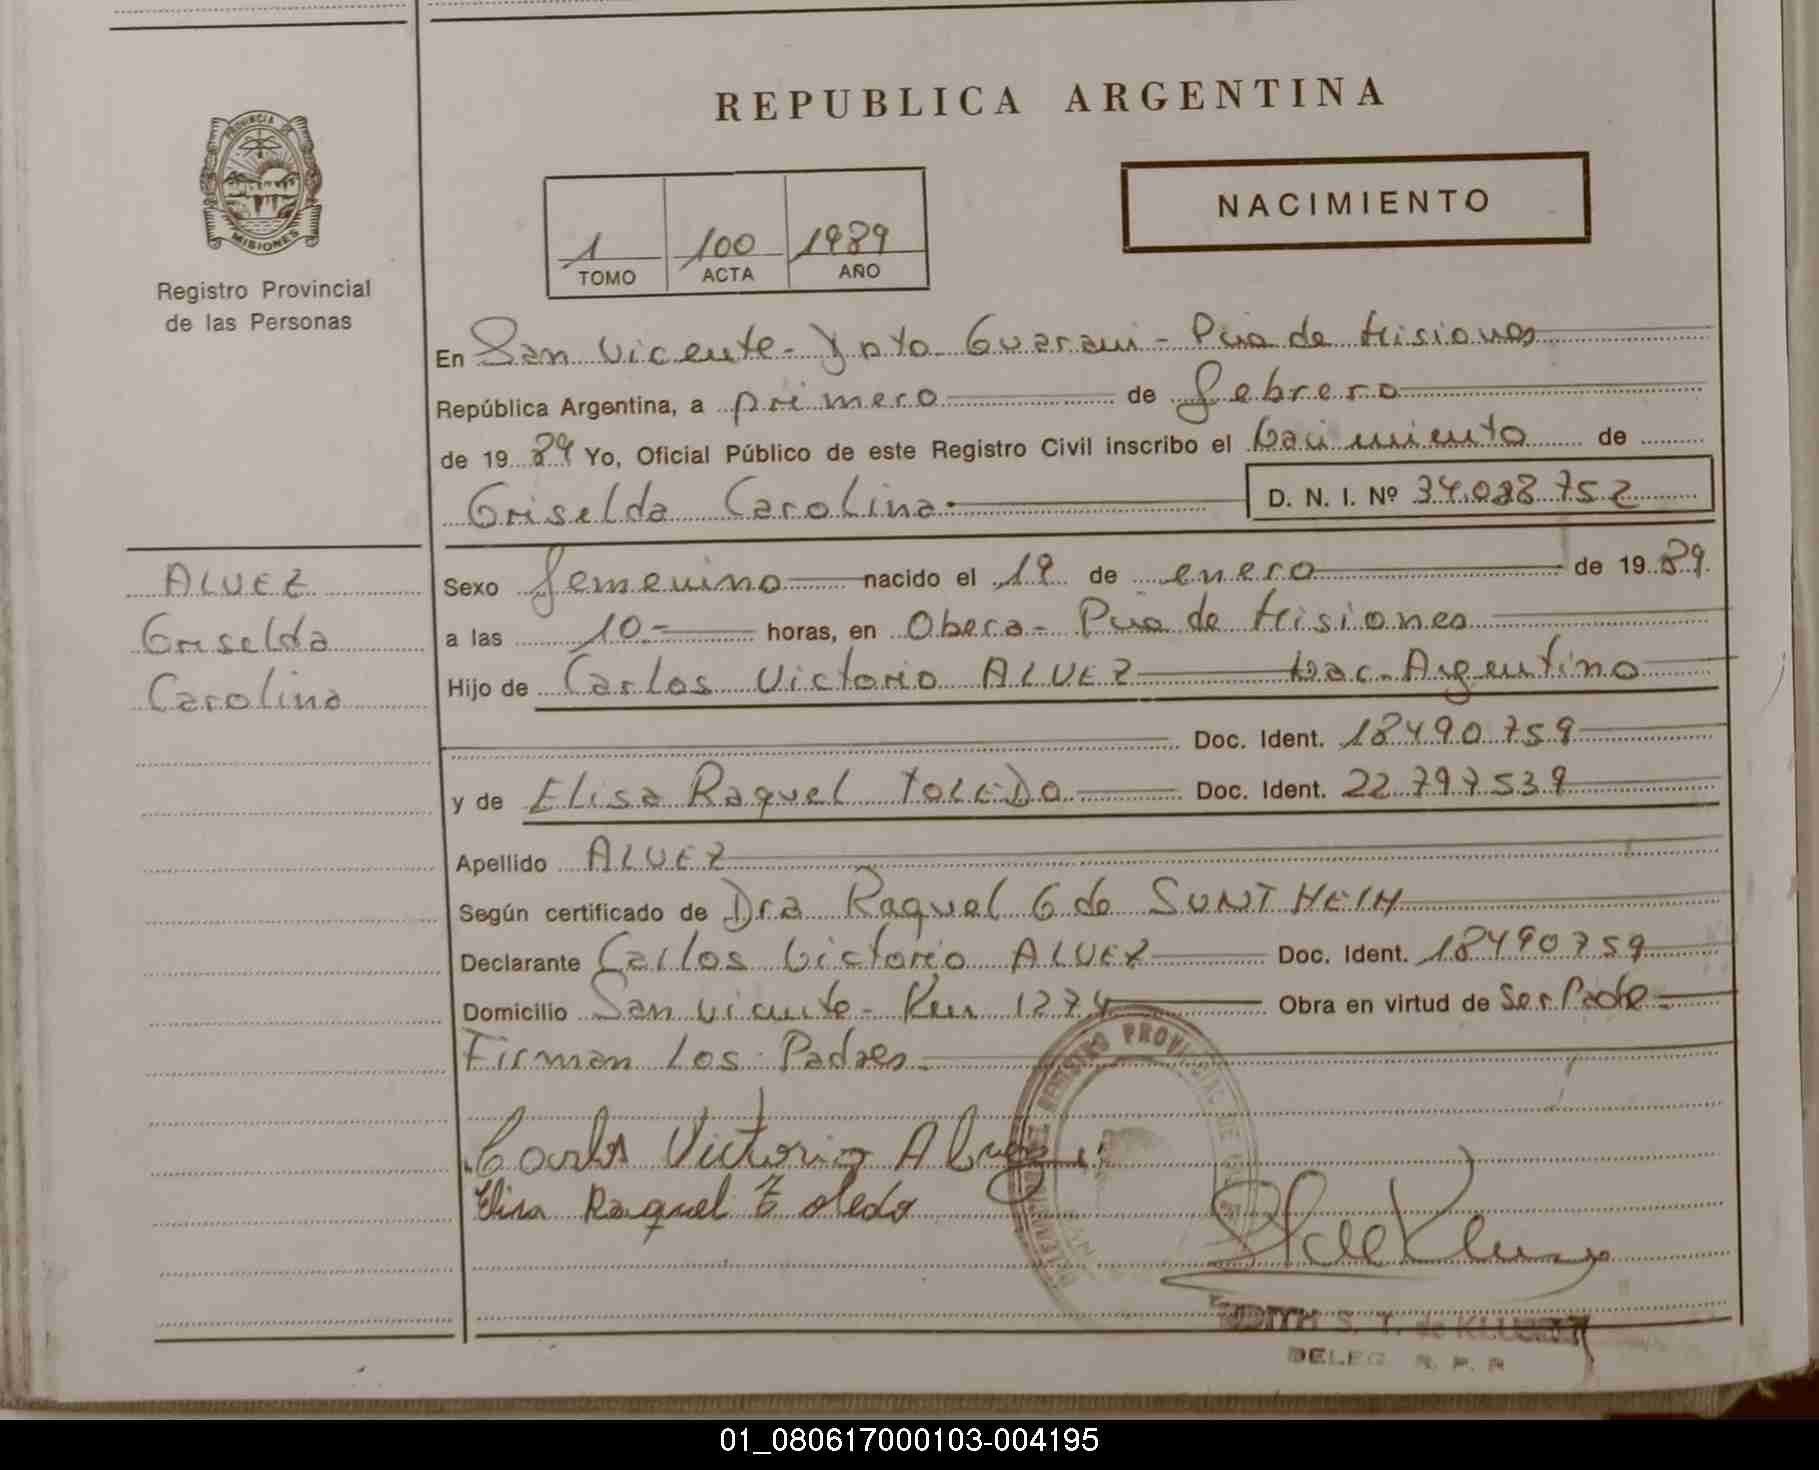 REPUBLICA ARGENTINA
PROVINCIA DE
MISIONES
Registro Provincial
de las Personas
1 100 1989
TOMO ACTA AÑO
NACIMIENTO
En San Vicente - Dpto Guarani - Pcia de Misiones
República Argentina, a primero de febrero
de 19 89 Yo, Oficial Público de este Registro Civil inscribo el Nacimiento de
Griselda Carolina D. N. I. Nº 34.088.752
ALVEZ
Griselda
Carolina
Sexo femenino nacido el 19 de enero de 19 89.
a las 10 - horas, en Obera - Pcia de Misiones
Hijo de Carlos Victorio ALVEZ Nac. Argentino
Doc. Ident. 18490759
y de Elisa Raquel TOLEDO Doc. Ident. 22.797.539
Apellido ALVEZ
Según certificado de Dra Raquel G de SUNTHEIM
Declarante Carlos Victorio ALVEZ Doc. Ident. 18490759
Domicilio San Vicente - Km 1274 Obra en virtud de Ser Padre
Firman Los Padres
Carlos Victorio Alvez
Elisa Raquel Toledo
REGISTRO PROVINCIAL DE
S. T. de
DELEG. R. P. P.
01_080617000103-004195